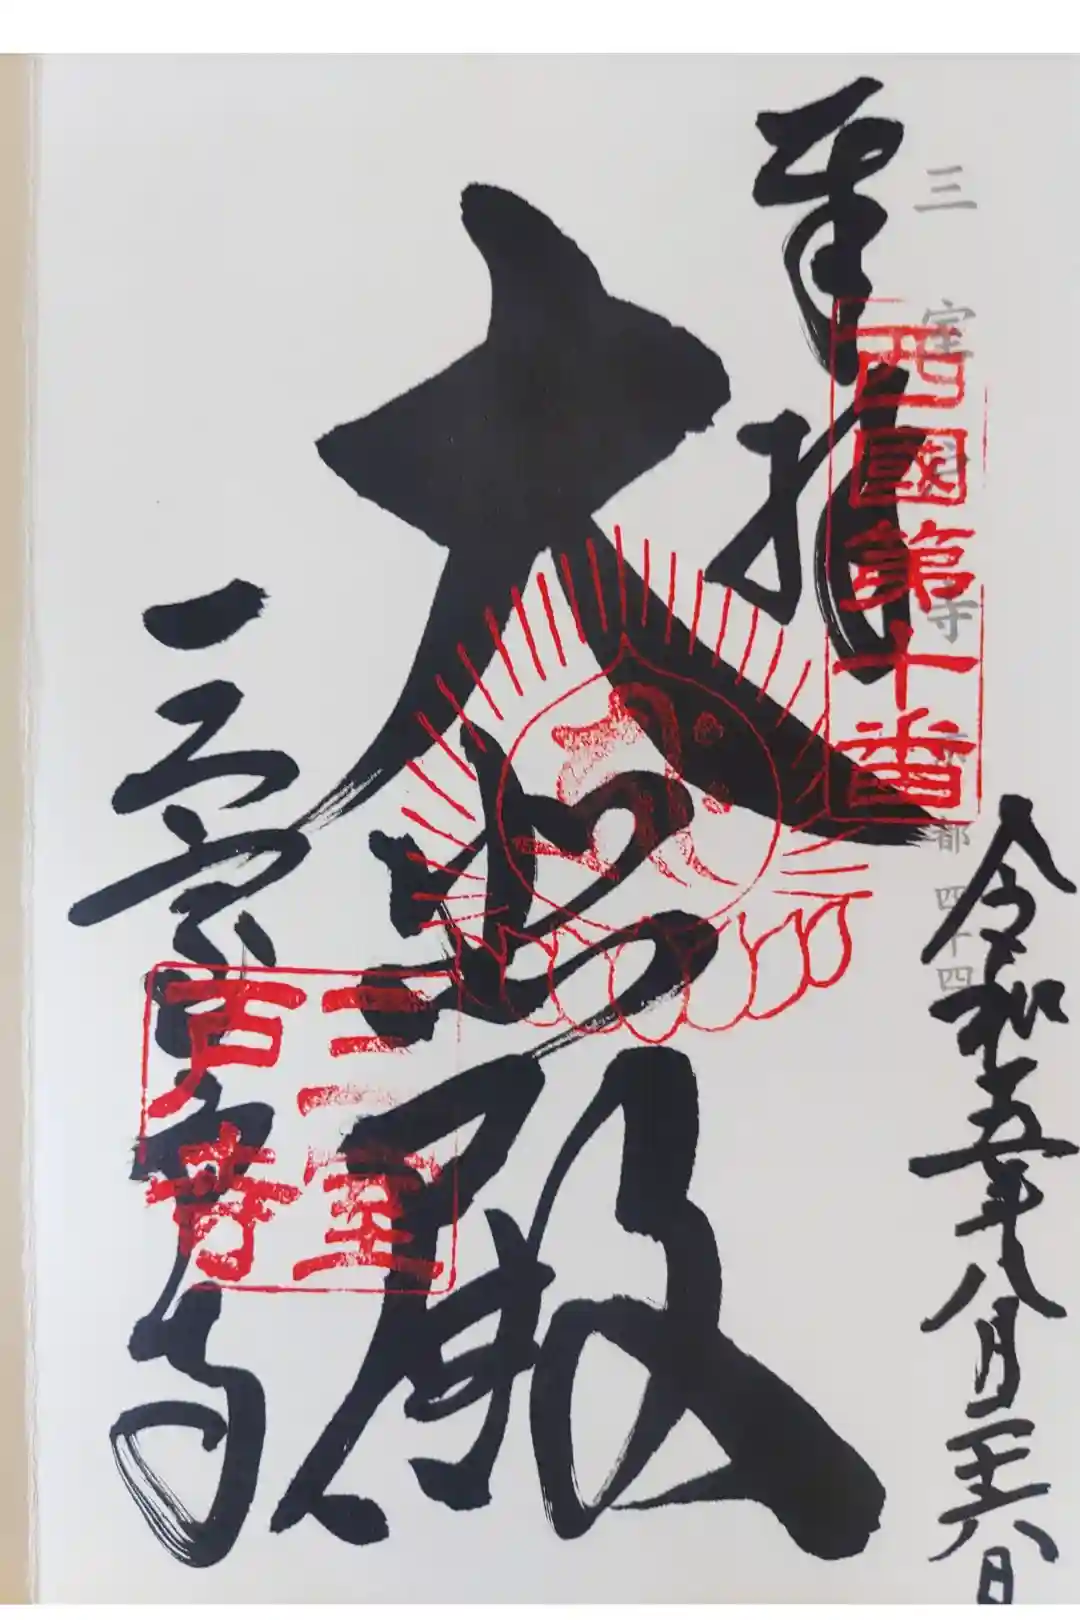 三室戸寺 京都四十四
令和五年八月二十六日
奉拝
西國第十番
大悲殿
三室戸寺
三室
戸寺